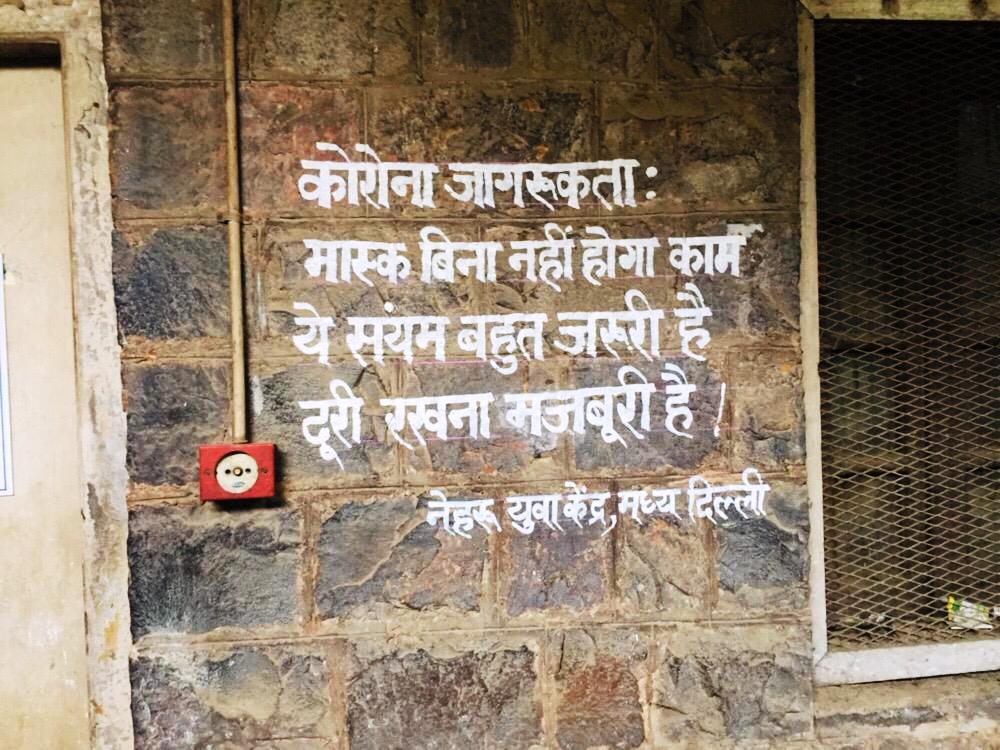 कोरोना जागरूकता:
मास्क बिना नहीं होगा काम
ये संयम बहुत जरूरी है
दूरी रखना मजबूरी है !
नेहरू युवा केंद्र, मध्य दिल्ली